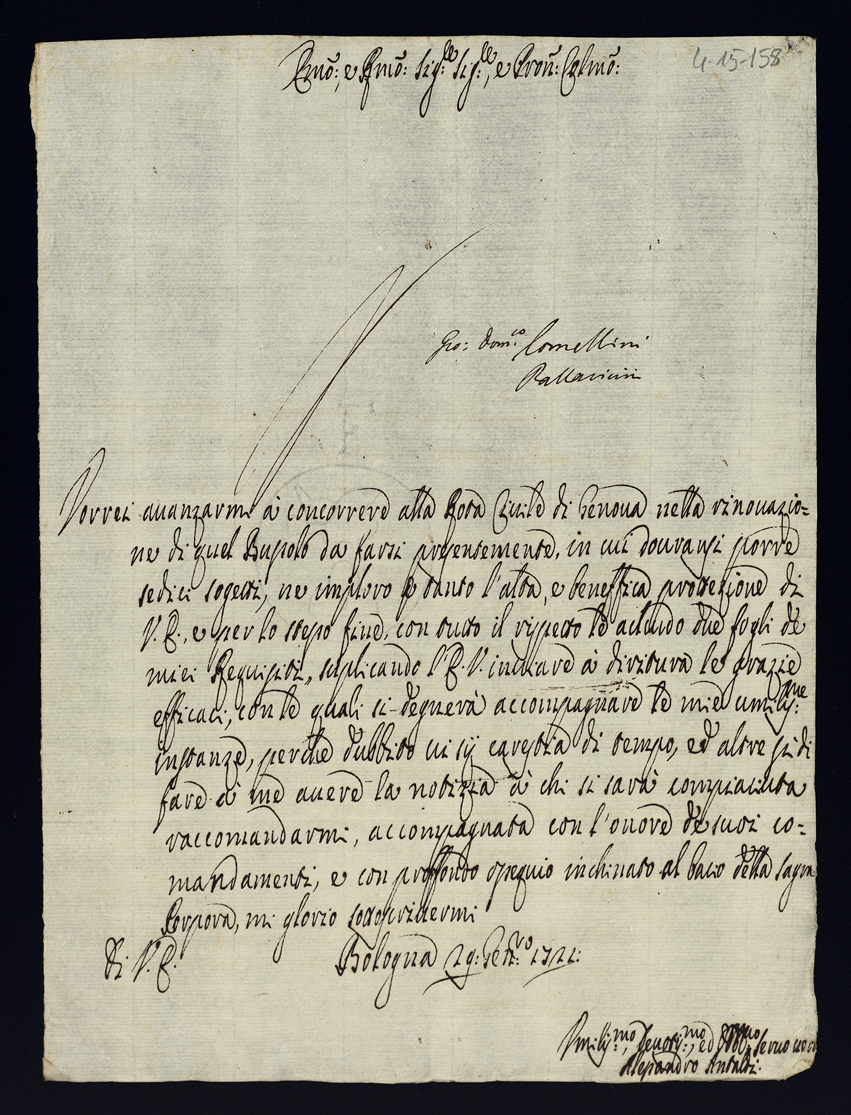 4-15-158
Emo:, e Rmo: Sig:re Sig:re, e Pron: Colmo:
Gio: Dom:co Lomellini
Pallavicini
Vorrei auanzarmi à concorrere alla Rota Ciuile di Genoua nella rinouazio=
ne di quel Bussolo da farsi presentemente, in cui douransi porre
sedici sogetti, ne imploro per tanto l'alta, e beneffica protezione di
V. E., e per lo stesso fine, con tutto il rispetto le acludo due fogli de
miei Requisiti, suplicando l'E. V. inuiare à diritura le grazie
efficaci, con le quali si degnerà accompagnare le mie umiliss:me
instanze, perche dubbito ui sij carestia di tempo, ed altresi di
fare à me auere la notizia à chi si sarà compiaciuta
raccomandarmi, accompagnata con l'onore de suoi co=
mandamenti, e con proffondo ossequio inchinato al bacio della sagra
Porpora, mi glorio sottoscriuermi
Di V. E. Bologna 29: Gen:ro 1721:
Umiliss:mo, Deuotiss:mo, ed Obb:mo Seruo uero
Alessandro Antaldi: